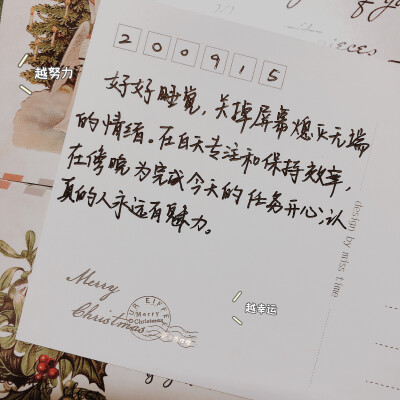 越努力
200915
好好睡觉,关掉屏幕熄灭无端
的情绪。在白天专注和保持效率,
在傍晚为完成今天的任务开心,认
真的人永远有魅力。
design by miss time
Merry
Christmas
Merry
Christmas
越幸运